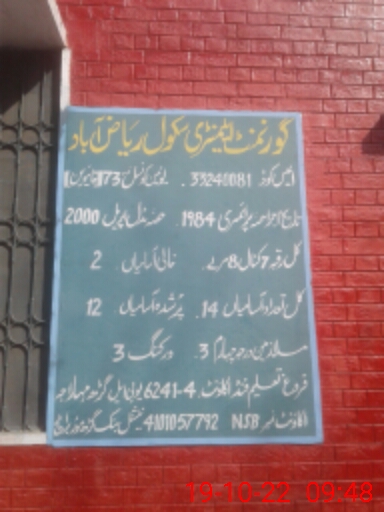 گورنمنٹ ایلیمنٹری سکول ریاض آباد
ایمس کوڈ 33240081 . یونین کونسل 73
تاریخ اجراء حصہ پرائمری 1984 حصہ مڈل اپریل 2000
کل رقبہ 7 کنال 8 مرلے . خالی آسامیاں 2
کل تعداد آسامیاں 14 . پُر شدہ آسامیاں 12
ملازمین درجہ چہارم 3 . ورکنگ 3
فروغ تعلیم فنڈ اکاؤنٹ 6241-4 یو بی ایل گڑھ مہاراجہ
اکاؤنٹ نمبر NSB 4101057792 نیشنل بنک گڑھ
19-10-22 09:48